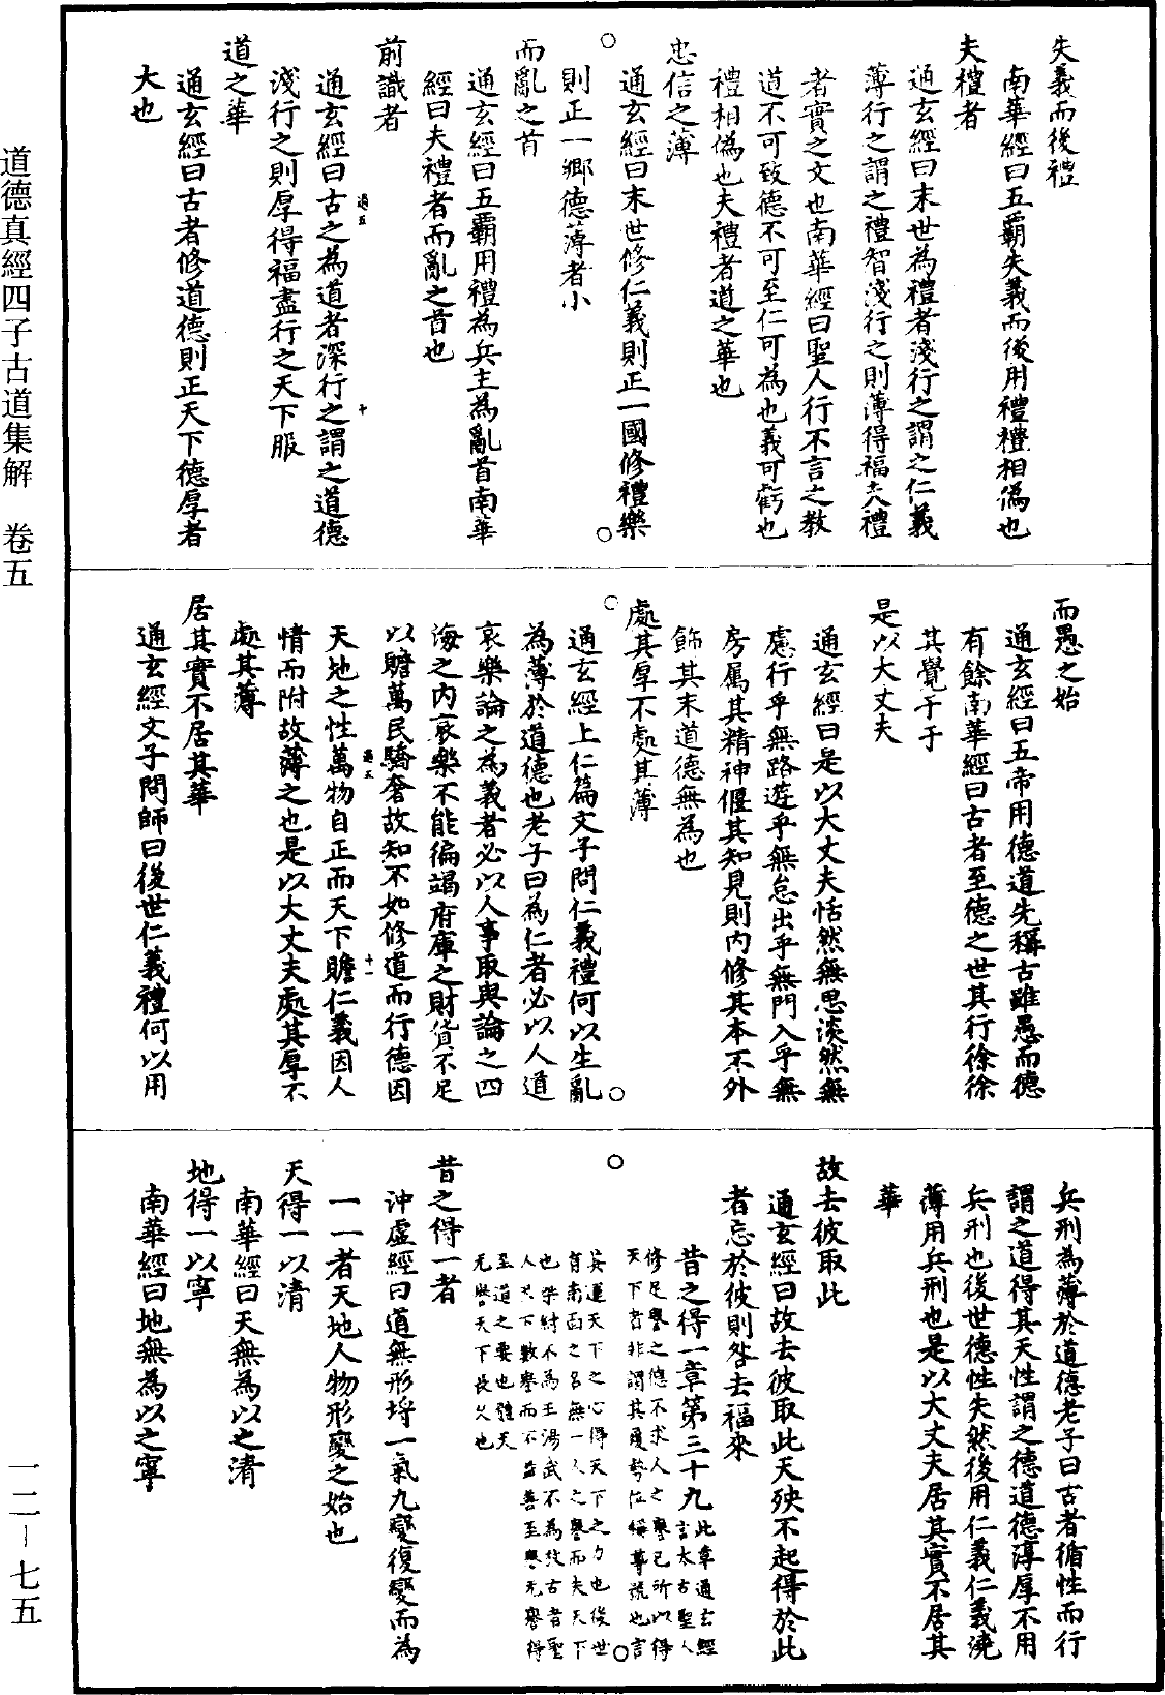 失義而後禮
南華經曰五霸失義而後用禮禮相偽也
夫禮者
通玄經曰末世為禮者淺行之謂之仁義
薄行之謂之禮智淺行之則薄得福夫禮
者實之文也南華經曰聖人行不言之教
道不可致德不可至仁可為也義可虧也
禮相偽也夫禮者道之華也
忠信之薄
通玄經曰末世修仁義則正一國修禮樂
則正一鄉德薄者小
而亂之首
通玄經曰五霸用禮為兵主為亂首南華
經曰夫禮者而亂之首也
前識者
通玄經曰古之為道者深行之謂之道德
淺行之則厚得福盡行之天下服
道之華
通玄經曰古者修道德則正天下德厚者
大也
而愚之始
通玄經曰五帝用德道先稱古雖愚而德
有餘南華經曰古者至德之世其行徐徐
其覺于于
是以大丈夫
通玄經曰是以大丈夫恬然無思淡然無
慮行乎無路遊乎無怠出乎無門入乎無
房屬其精神偃其知見則內修其本不外
飾其末道德無為也
處其厚不處其薄
通玄經上仁篇文子問仁義禮何以生亂
為薄於道德也老子曰為仁者必以人道
哀樂論之為義者必以人事取與論之四
海之內哀樂不能徧竭府庫之財貨不足
以贍萬民驕奢故知不如修道而行德因
天地之性萬物自正而天下贍仁義因人
情而附故薄之也是以大丈夫處其厚不
處其薄
居其實不居其華
通玄經文子問師曰後世仁義禮何以用
兵刑為薄於道德老子曰古者循性而行
謂之道得其天性謂之德道德淳厚不用
兵刑也後世德性失然後用仁義仁義澆
薄用兵刑也是以大丈夫居其實不居其
華
故去彼取此
通玄經曰故去彼取此天殃不起得於此
者忘於彼則咎去福來
昔之得一章第三十九此章通玄經
言太古聖人
修足譽之德不求人之譽已所以得
天下者非謂其履勢位稱尊號也言
其運天下之心得天下之力也後世
有南面之名無一人之譽而失天下
也桀紂不為王湯武不為放古者聖
人
至道之要也體天
无譽天下長久也
昔之得一者
沖虛經曰道無形埒一氣九變復變而為
一一者天地人物形變之始也
天得一以清
南華經曰天無為以之清
地得一以寧
南華經曰地無為以之寧
道德真經四子古道集解 卷五
一二—七五